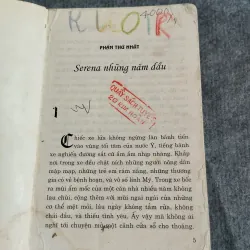 PHẦN THỨ NHẤT
Serena những năm đầu
1
Chiếc xe lửa không ngừng lăn bánh tiến
vào vùng tối tăm của nước Ý, tiếng bánh
xe nghiến đường sắt cứ ầm ầm nhịp nhàng. Khắp
nơi trong xe đều chật ních những người nông dân
mập mạp, những trẻ em cằn cỗi, những thương
gia có vẻ bệnh hoạn, và vô số lính Mỹ. Trong xe hôi
ra mùi ẩm mốc của một căn nhà nhiều năm không
lau chùi, cộng thêm với mùi ngai ngái của những
cơ thể mệt mỏi, lâu ngày không tắm rửa, không
chải đầu, và thiếu tình yêu. Ấy vậy mà không ai
nghĩ tới chuyện mở một cánh cửa sổ cho thoáng.
5